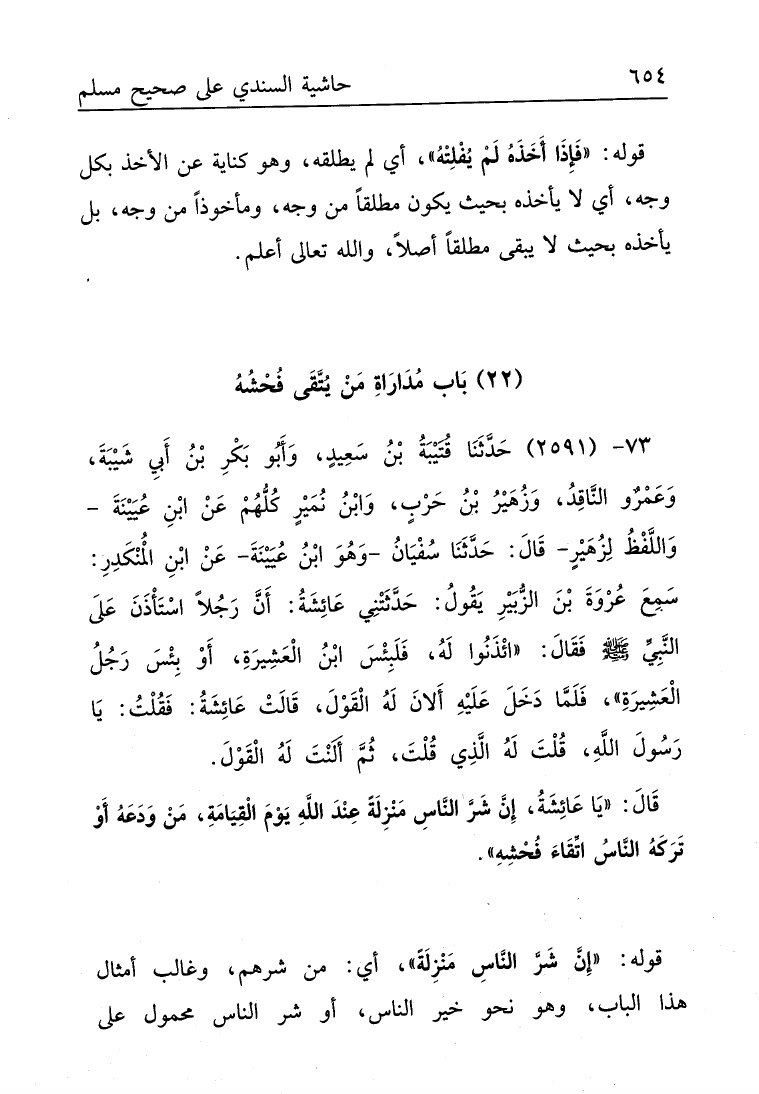 ٦٥٤
حاشية السندي على صحيح مسلم
قوله: «فَإِذَا أَخَذَهُ لَمْ يُفْلِتْهُ»، أي لم يطلقه، وهو كناية عن الأخذ بكل
وجه، أي لا يأخذه بحيث يكون مطلقاً من وجه، ومأخوذاً من وجه، بل
يأخذه بحيث لا يبقى مطلقاً أصلاً، والله تعالى أعلم.
(٢٢) بَاب مُدَارَاةِ مَنْ يُتَّقَى فُحْشُهُ
٧٣- (٢٥٩١) حَدَّثَنَا قُتَيْبَةُ بْنُ سَعِيدٍ، وَأَبُو بَكْرِ بْنُ أَبِي شَيْبَةَ،
وَعَمْرٌو النَّاقِدُ، وَزُهَيْرُ بْنُ حَرْبٍ، وَابْنُ نُمَيْرٍ كُلُّهُمْ عَنْ ابْنِ عُيَيْنَةَ -
وَاللَّفْظُ لِزُهَيْرٍ- قَالَ: حَدَّثَنَا سُفْيَانُ -وَهُوَ ابْنُ عُيَيْنَةَ- عَنْ ابْنِ الْمُنْكَدِرِ:
سَمِعَ عُرْوَةَ بْنَ الزُّبَيْرِ يَقُولُ: حَدَّثَتْنِي عَائِشَةُ: أَنَّ رَجُلاً اسْتَأْذَنَ عَلَى
النَّبِيِّ ﷺ فَقَالَ: «ائْذَنُوا لَهُ، فَلَبِئْسَ ابْنُ الْعَشِيرَةِ، أَوْ بِئْسَ رَجُلُ
الْعَشِيرَةِ»، فَلَمَّا دَخَلَ عَلَيْهِ أَلَانَ لَهُ الْقَوْلَ، قَالَتْ عَائِشَةُ: فَقُلْتُ: يَا
رَسُولَ اللَّهِ، قُلْتَ لَهُ الَّذِي قُلْتَ، ثُمَّ أَلَنْتَ لَهُ الْقَوْلَ.
قَالَ: «يَا عَائِشَةُ، إِنَّ شَرَّ النَّاسِ مَنْزِلَةً عِنْدَ اللَّهِ يَوْمَ الْقِيَامَةِ، مَنْ وَدَعَهُ أَوْ
تَرَكَهُ النَّاسُ اتِّقَاءَ فُحْشِهِ».
قوله: «إِنَّ شَرَّ النَّاسِ مَنْزِلَةً»، أي: من شرهم، وغالب أمثال
هذا الباب، وهو نحو خير الناس، أو شر الناس محمول على